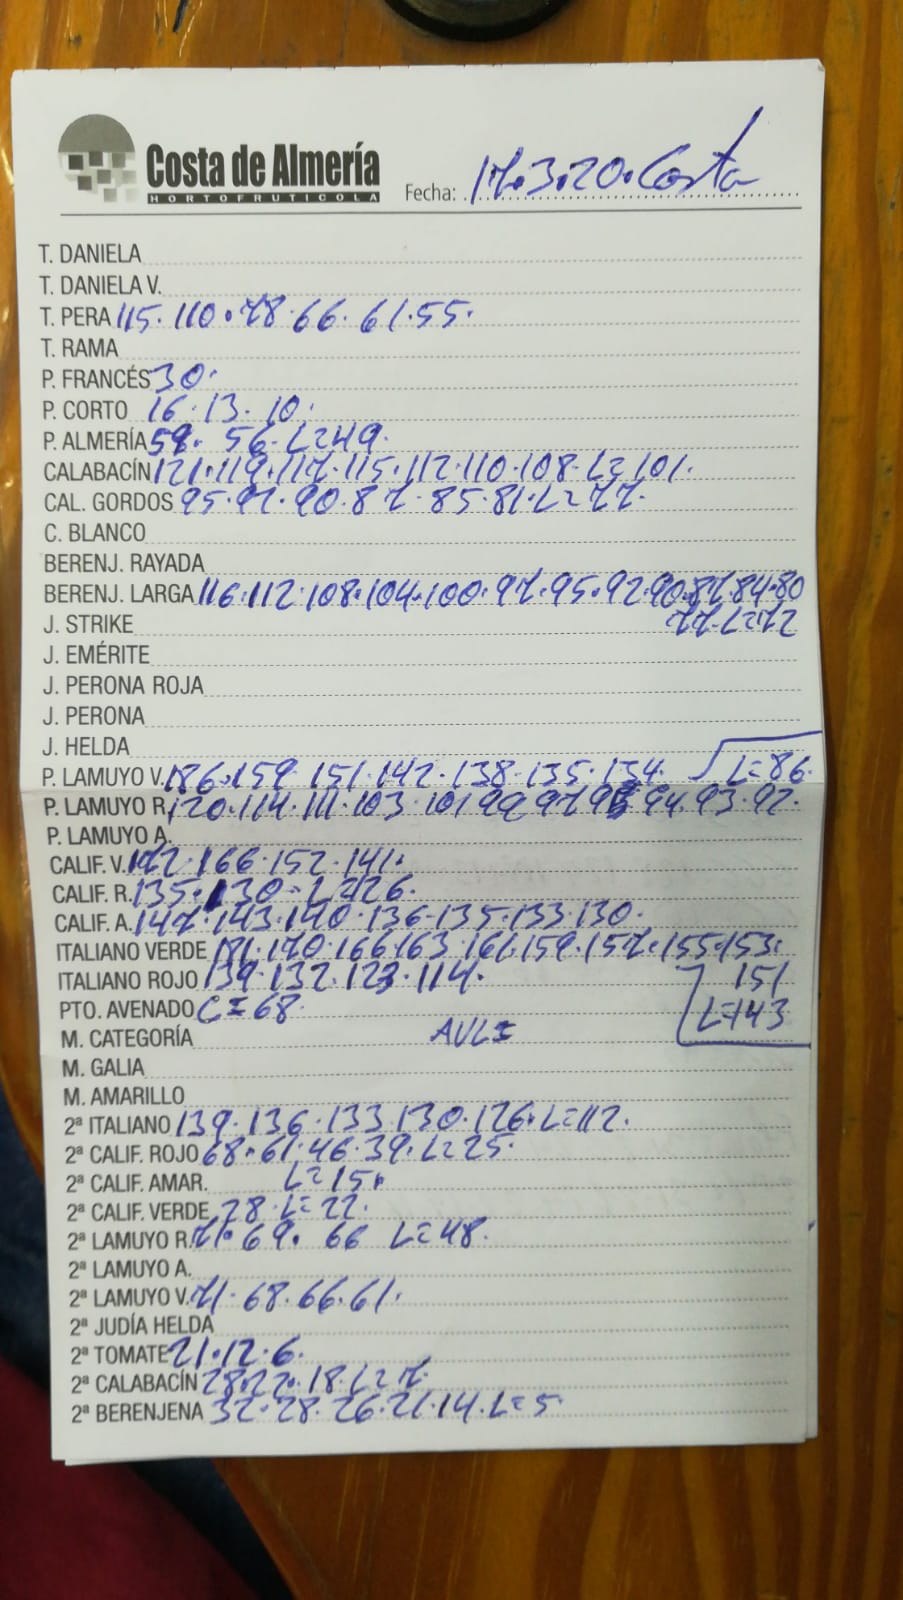 Costa de Almería
HORTOFRUTICOLA
Fecha: 17.3.20. Costa
T. DANIELA
T. DANIELA V.
T. PERA 115. 110. 78. 66. 61. 55.
T. RAMA
P. FRANCÉS 30.
P. CORTO 16. 13. 10.
P. ALMERÍA 59. 56. L=49.
CALABACÍN 121. 119. 117. 115. 112. 110. 108. L=101.
CAL. GORDOS 95. 92. 90. 87. 85. 81. L=77.
C. BLANCO
BERENJ. RAYADA
BERENJ. LARGA 116. 112. 108. 104. 100. 97. 95. 92. 90. 87. 84. 80
J. STRIKE 77. L=72
J. EMÉRITE
J. PERONA ROJA
J. PERONA
J. HELDA
P. LAMUYO V. 186. 159. 151. 142. 138. 135. 134. L=86.
P. LAMUYO R. 120. 114. 111. 103. 101 99 97. 94. 93. 92.
P. LAMUYO A.
CALIF. V. 172. 166. 152. 141.
CALIF. R. 135. 130. L=126.
CALIF. A. 147. 143. 140. 136. 135. 133. 130.
ITALIANO VERDE 181. 170. 166. 163. 161. 159. 157. 155. 153.
ITALIANO ROJO 139. 132. 123. 114. 151
PTO. AVENADO C=68. L=143
M. CATEGORÍA
M. GALIA
M. AMARILLO
2ª ITALIANO 139. 136. 133. 130. 126. L=112.
2ª CALIF. ROJO 68. 61. 46. 39. L=25.
2ª CALIF. AMAR. L=15.
2ª CALIF. VERDE 28. L=22.
2ª LAMUYO R. 71. 69. 66 L=48.
2ª LAMUYO A.
2ª LAMUYO V. 71. 68. 66. 61.
2ª JUDÍA HELDA
2ª TOMATE 21. 12. 6.
2ª CALABACÍN 28. 22. 18. L=7.
2ª BERENJENA 32. 28. 26. 21. 14. L=5